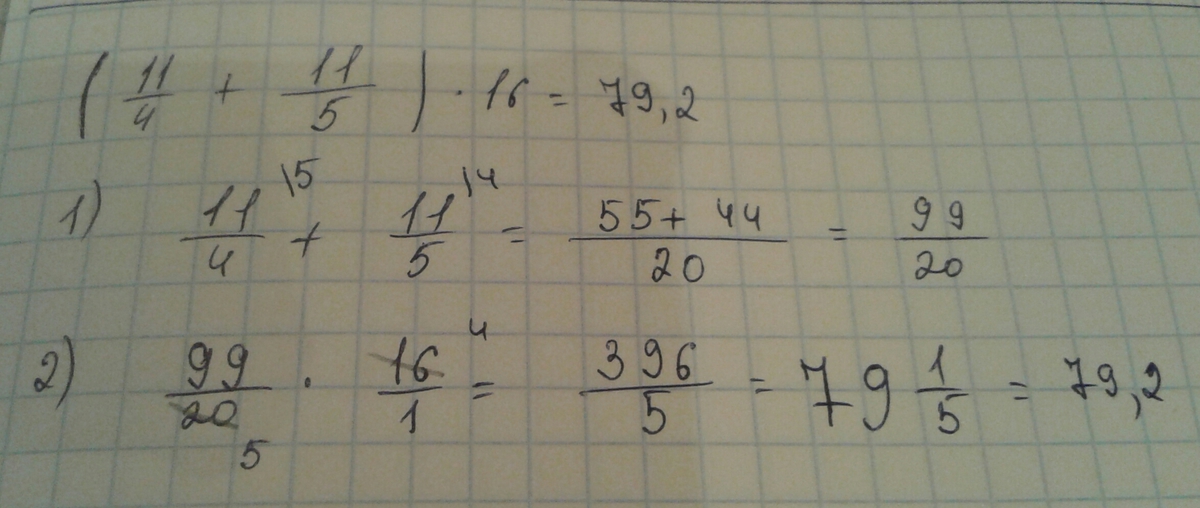 (11/4 + 11/5) · 16 = 79,2
1) 11/4 \5 + 11/5 \4 = 55+44/20 = 99/20
2) 99/20 5 · 16/1 4 = 396/5 = 79 1/5 = 79,2